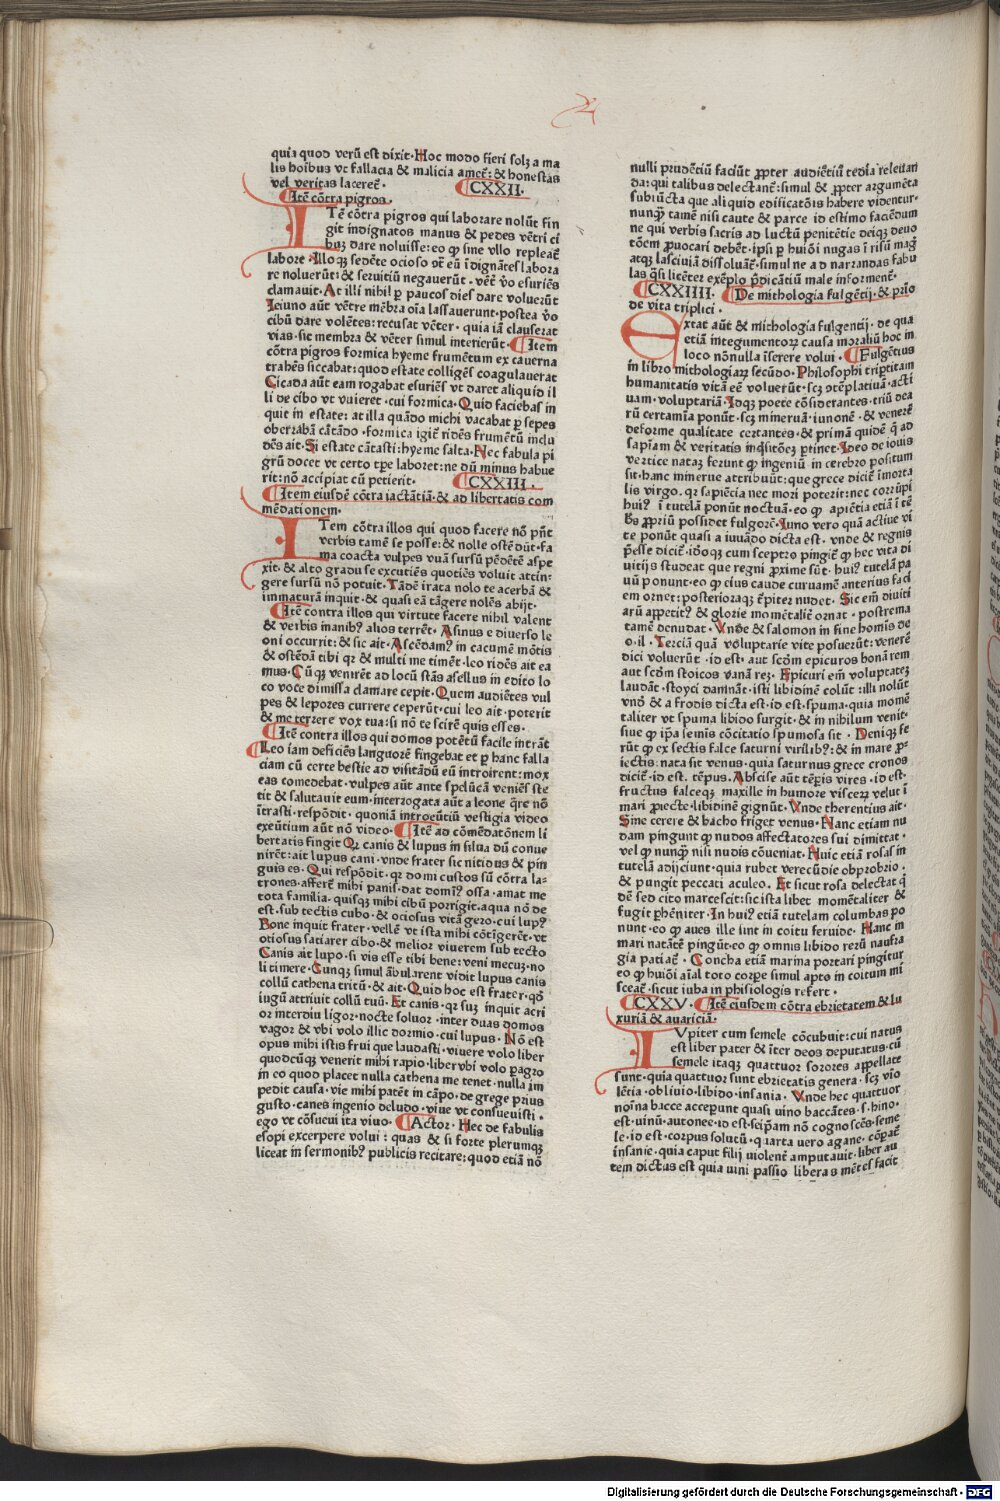 quia quod verū est dixit·Hoc modo fieri solꝫ a ma
lis hoībus vt fallacia & malicia amet̄: & honestas
vel veritas laceret̄· CXXII·
Itē cōtra pigros·
ITē cōtra pigros qui laborare nolūt fin
git indignatos manus & pedes vētri ci
bū dare noluisse: eo ꝙ sine vllo repleat̄
labore·Illoqꝫ sedēte ocioso ot̄ eū īdignātes labora
re noluerūt: & seruitiū negauerūt·vēt̄ v̊o esuriēs
clamauit·At illi nihil ꝑ paucos dies dare voluerūt
Ieiuno aūt vētre mēbra oīa lassauerunt·postea v̊o
cibū dare volētes: recusat vēter·quia iā clauserat
vias·sic membra & vēter simul interierūt· Item
cōtra pigros formica hyeme frumētum ex cauerna
trahēs siccabat: quod estate colligēs coagulauerat
Cicada aūt eam rogabat esuriēs vt daret aliquid il
li de cibo vt viueret·cui formica·Quid faciebas in
quit in estate: at illa quādo michi vacabat ꝑ sepes
oberrabā cātādo·formica igit̄ ridēs frumētū inclu
dēs ait·Si estate cātasti: hyeme salta·Nec fabula pi
grū docet vt certo tꝑe laboret: ne dū minus habue
rit: nō accipiat cū petierit· CXXIII·
Item eiusdē cōtra iactātiā·& ad libertatis com
mēdationem·
ITem cōtra illos qui quod facere nō pn̄t
verbis tamē se posse: & nolle ostēdūt·fa
ma coacta vulpes vuā sursū pēdētē aspe
xit·& alto gradu se excutiēs quotiēs voluit attin-
gere sursū nō potuit·Tādē irata nolo te acerbā &
immaturā inquit·& quasi eā tāgere nolēs abijt·
Itē contra illos qui virtute facere nihil valent
& verbis inanibꝰ alios terrēt·Asinus e diuerso le
oni occurrit: & sic ait·Ascēdamꝰ in cacumē mōtis
& ostēdā tibi qꝛ & multi me timēt·leo ridēs ait ea
mus·Cūqꝫ venirēt ad locū stās asellus in edito lo
co voce dimissa clamare cepit·Quem audiētes vul
pes & lepores currere ceperūt·cui leo ait·poterit
& me terrere vox tua: si nō te scirē quis esses·
Itē contra illos qui domos potētū facile intrāt
Leo iam deficiēs languorē fingebat et ꝑ hanc falla
ciam cū certe bestie ad visitādū eū introirent: mox
eas comedebat·vulpes aūt ante spelūcā veniēs ste
tit & salutauit eum·interrogata aūt a leone q̄re nō
ītrasti·respōdit·quoniā introeūtiū vestigia video
exeūtium aūt nō video· Itē ad cōmēdatōnem li
bertatis fingit Qꝛ canis & lupus in silua dū conue
nirēt: ait lupus cani·vnde frater sic nitidus & pin
guis es·Qui respōdit·qꝛ domi custos sū cōtra la-
trones·afferēt mihi panis·dat domīꝰ ossa·amat me
tota familia·quisqꝫ mihi cibū porrigit·aqua nō de
est·sub tectis cubo·& ociosus vitā gero·cui lupꝰ
Bone inquit frater·vellē vt ista mihi cōtīgerēt·vt
otiosus satiarer cibo·& melior viuerem sub tecto
Canis ait lupo·si vis esse tibi bene: veni mecuꝫ·no
li timere·Cunqꝫ simul ābularent vidit lupus canis
collū cathena tritū·& ait·Quid hoc est frater·qd̄
iugū attriuit collū tuū·Et canis·qꝛ suꝫ inquit acri
or interdiu ligor·nocte soluor·inter duas domos
vagor & vbi volo illic dormio·cui lupus·Nō est
opus mihi istis frui que laudasti·viuere volo liber
quodcūqꝫ venerit mihi rapio·liber vbi volo ꝑagro
in eo quod placet nulla cathena me tenet·nulla im
pedit causa·vie mihi patēt in cāpo·de grege prius
gusto·canes ingenio deludo·viue vt consueuisti·
ego vt cōsueui ita viuo· Actor·Hec de fabulis
esopi excerpere volui: quas & si forte plerumqꝫ
liceat in sermonibꝰ publicis recitare: quod etiā nō
nulli prudētiū faciūt ꝓpter audiētiū tedia releuan
da: qui talibus delectant̄: simul & ꝓpter argumēta
subiūcta que aliquid edificatōis habere videntur·
nunqꝫ tamē nisi caute & parce id estimo faciēdum
ne qui verbis sacris ad luctū penitētie deiqꝫ deuo
tōem ꝓuocari debēt·ipsi ꝑ huiōi nugas ī risū magꝭ
atqꝫ lasciuiā dissoluāt̄·simul ne ad narrandas fabu
las qͣsi licēter exēplo p̄dicātiū male informent̄·
CXXIIII· De mithologia fulgētij·& prīo
de vita triplici·
EXtat aūt & mithologia fulgentij·de qua
etiā integumentoꝝ causa moraliū hoc in
loco nōnulla īserere volui· Fulgētius
in libro mithologiaꝝ secūdo·Philosophi tripertitam
humanitatis vitā eē voluerūt·scꝫ ↄtēplatiuā·acti
uam·voluptariā·Idqꝫ poete cōsiderantes·triū dea
rū certamīa ponūt·scꝫ mineruā·iunonē·& venerē
deforme qualitate certantes·& primā quidē q̄ ad
sapīam & veritatis inq̄sitōeꝫ ꝑtinet·Ideo de iouis
vertice nataꝫ ferunt ꝙ ingeniū in cerebro positum
sit·hanc minerue attribuūt: que grece dicit̄ īmorta
lis virgo·qꝛ sapiēcia nec mori poterit: nec corrūpi
huiꝰ ī tutelā ponūt noctuā·eo ꝙ sapiētia etiā ī te
ꝓpriū possidet fulgorē·Iuno vero quā actiue vi
te ponūt quasi a iuuādo dicta est·vnde & regnis
p̄esse dicit̄·idoqꝫ cum sceptro pingit̄ ꝙ hec vita di
uitijs studeat que regni ꝓxime sūt·huiꝰ tutela pa
uū ponunt·eo ꝙ eius caude curuamē anterius faci
em ornet: posterioraqꝫ ēpiter nudet·Sic em̄ diuiti
arū appetitꝰ & glorie momētaliē ornat·postrema
tamē denudat·Vnde & salomon in fine homīs de
o·il·Terciā quā voluptarie vite posuerūt: venerē
dici voluerūt·id est·aut scd̄m epicuros bonā rem
aut scd̄m stoicos vanā reꝫ·Epicuri em̄ voluptateꝫ
laudāt·stoyci damnāt·isti libidinē colūt: illi nolūt
vnd̄ & a frodis dicta est·id est·spuma·quia momē
taliter vt spuma libido surgit·& in nibilum venit·
siue ꝙ ipa̅ semīs cōcitatio spumosa sit·Deniqꝫ fe
rūt ꝙ ex sectis falce saturni virilibꝰ: & in mare ꝓ-
iectis: nata sit venus·quia saturnus grece cronos
dicit̄·id est·tēpus·Abscise aūt tēp̄is vires·id est·
fructus falceqꝫ maxille in humore visceꝝ velut ī
mari ꝓiecte·libidinē gignūt·Vnde therentius ait·
Sine cerere & bacho friget venus·Hanc etiam nu
dam pingunt ꝙ nudos affectatores sui dimittat·
vel ꝙ nunqꝫ nisi nudis cōueniat·Huic etiā rosas in
tutelā adijciunt·quia rubet verecūdie obprobrio·
& pungit peccati aculeo·Et sicut rosa delectat qͥ
dē sed cito marcescit: sic ista libet momētaliter &
fugit ꝑhēniter·In huiꝰ etiā tutelam columbas po
nunt·eo ꝙ aues ille sint in coitu feruide·Hanc in
mari natātē pingūt·eo ꝙ omnis libido rerū naufra
gia patiat̄·Concha etiā marina portari pingitur
eo ꝙ huiōi aīal toto corpe simul apto in coitum mi
sceat̄·sicut iuba in phisiologis refert·
CXXV· Itē eiusdem cōtra ebrietatem & lu
xuriā & auariciā·
IVpiter cum semele cōcubuit: cui natus
est liber pater & īter deos deputatus·cū
semele itaqꝫ quattuor sorores appellate
sunt·quia quattuor sunt ebrietatis genera·scꝫ vīo
lētia·obliuio·libido·insania·Vnde hec quattuor
noīna bacce acceperunt quasi uino baccātes·s·hino·
est·uinū·autonee·id est·seipsam nō cognoscēs·seme
le·id est·corpus solutū·quarta vero agane·cōparat̄
īnsanie·quia caput filij uiolent̄ amputauit·liber au
tem dictus est quia uini passio liberas mētes facit